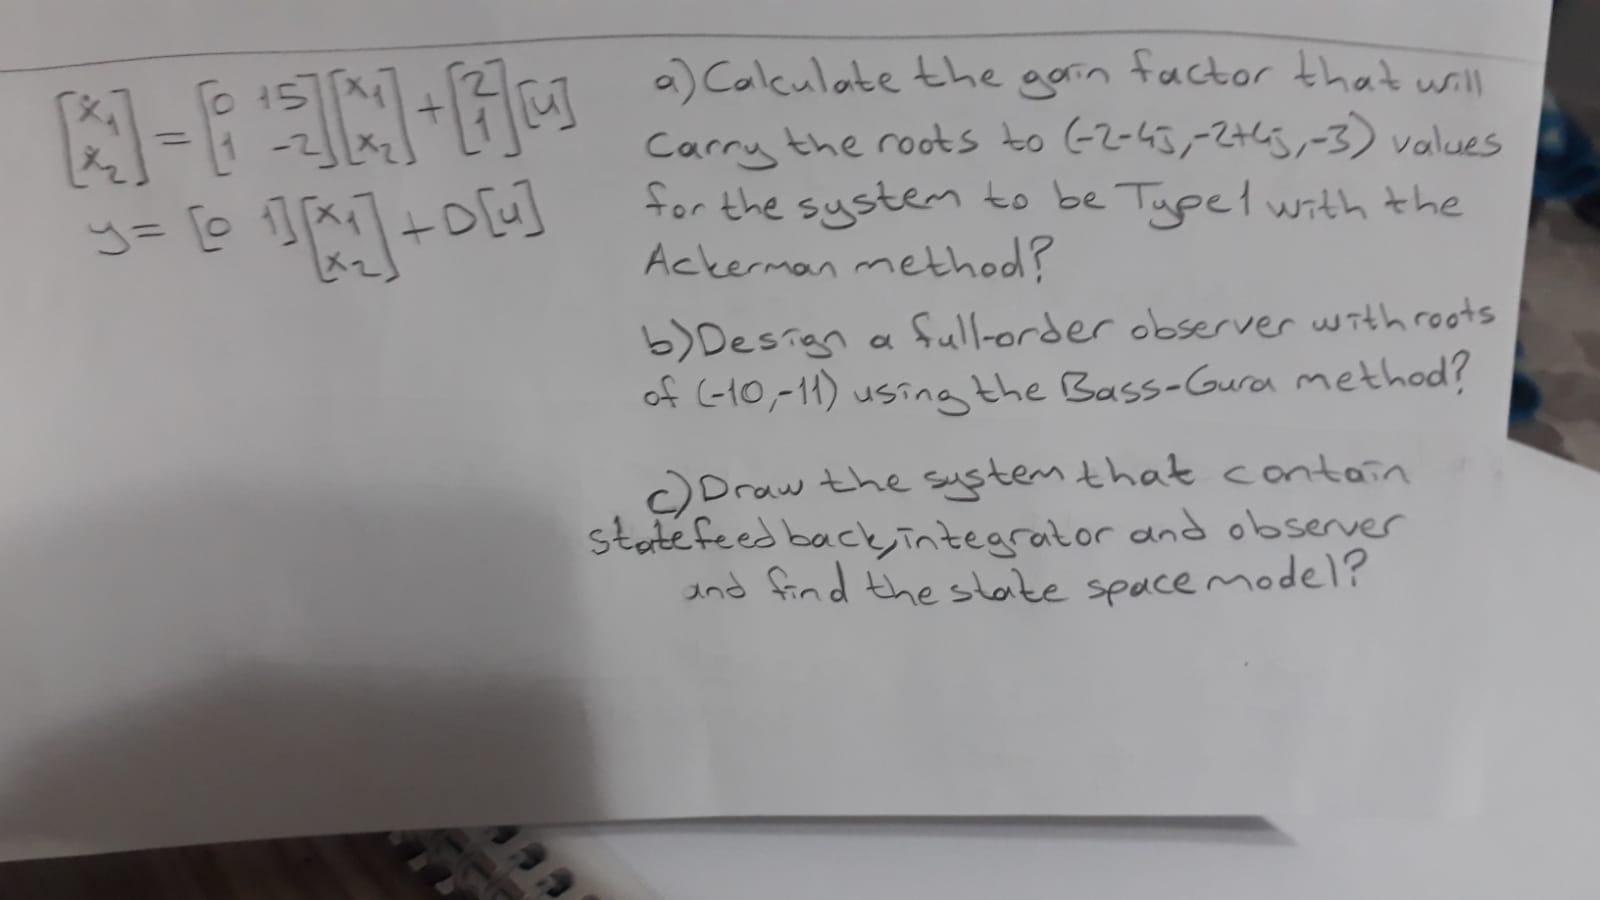 [ẋ1 ẋ2] = [0 15 1 -2][x1 x2] + [2 1][u]
y = [0 1][x1 x2] + D[u]
a) Calculate the gain factor that will
carry the roots to (-2-4j,-2+4j,-3) values
for the system to be Type1 with the
Ackerman method?
b) Design a full-order observer with roots
of (-10,-11) using the Bass-Gura method?
c) Draw the system that contain
state feedback, integrator and observer
and find the state space model?